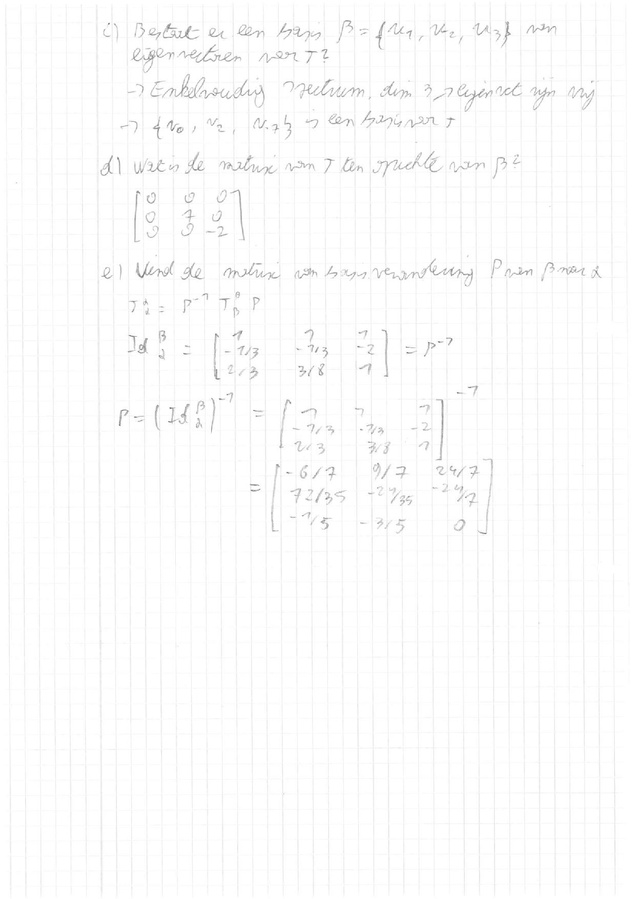 c) Bestaat er een basis β = {u1, u2, u3} van
eigenvectoren voor T?
→ Enkelvoudig spectrum, dim 3, eigenvct zijn vrij
→ {v0, v2, v-1} is een basis voor T
d) Wat is de matrix van T ten opzichte van β?
0 0 0
0 1 0
0 0 -2
e) Vind de matrix van basisverandering P van β naar α
T α α = P^-1 T β β P
Id β α = [ 1 1 1
-1/3 -1/3 -2 ] = P^-1
2/3 3/8 1
P = (Id β α)^-1 = [ 1 1 1 ]^-1
-1/3 -1/3 -2
2/3 3/8 1
= [ -6/7 9/7 24/7
72/35 -24/35 -24/7
-1/5 -3/5 0 ]